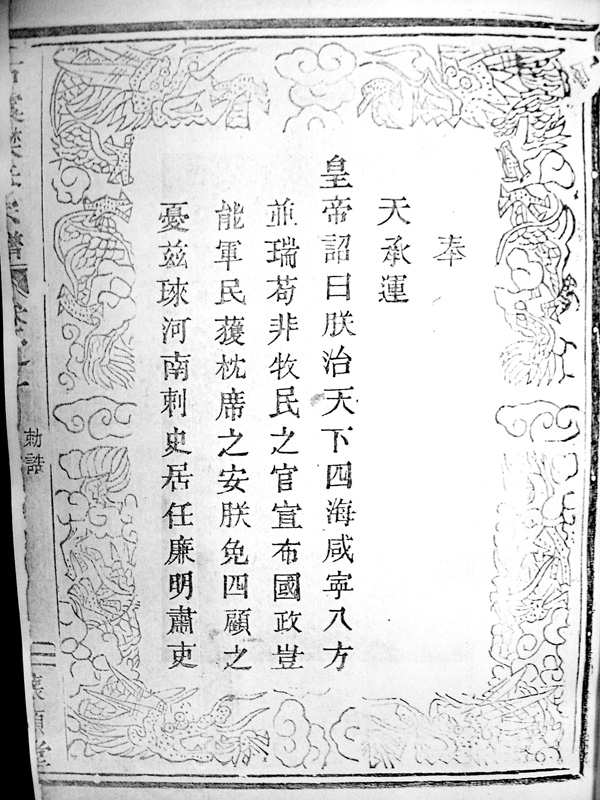 奉
天承運
皇帝詔曰朕治天下四海咸寧八方
並瑞苟非牧民之官宣布國政豈
能軍民蒦枕席之安朕免四顧之
憂兹琜河南刺史居任廉明肅吏
勅誥